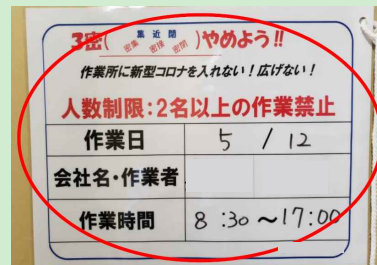 3密(集近閉 密集 密接 密閉)やめよう!!
作業所に新型コロナを入れない!広げない!
人数制限:2名以上の作業禁止
作業日 5 / 12
会社名・作業者
作業時間 8:30~17:00